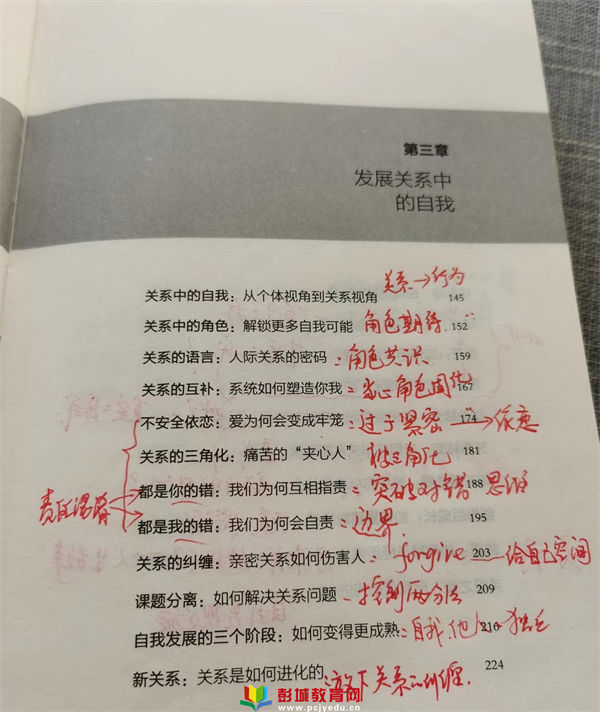 第三章
发展关系中
的自我
关系→行为
关系中的自我：从个体视角到关系视角 145
关系中的角色：解锁更多自我可能 角色期待 152
关系的语言：人际关系的密码：角色共识 159
关系的互补：系统如何塑造你我：当心角色固化 167
不安全依恋：爱为何会变成牢笼：过于紧密 174 →依恋
关系的三角化：痛苦的“夹心人” 被三角化 181
都是你的错：我们为何互相指责：突破对错 188 思维
责任混淆
都是我的错：我们为何会自责：边界 195
关系的纠缠：亲密关系如何伤害人：forgive 203 —给自己空间
课题分离：如何解决关系问题—控制两分法 209
自我发展的三个阶段：如何变得更成熟：自我 他人 210 独立
新关系：关系是如何进化的：放下关系的纠缠. 224
彭城教育网
www.pcjyedu.cn